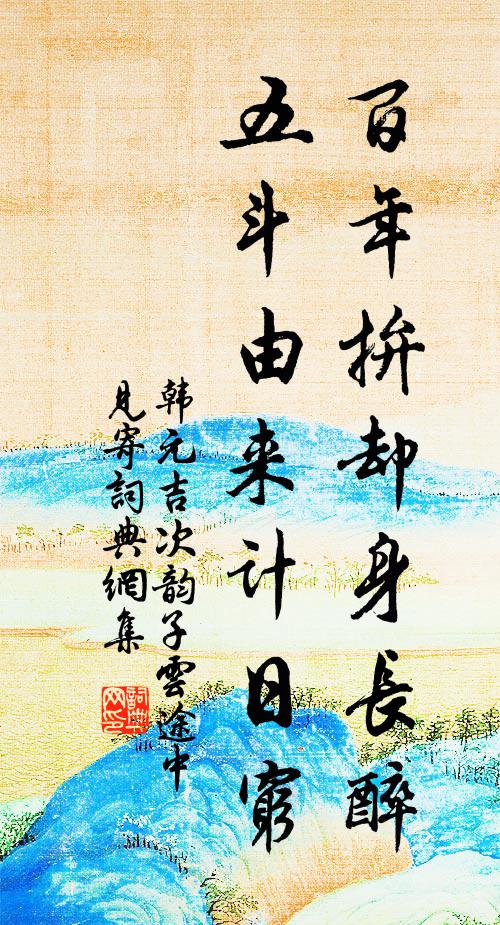 百年拚却身長醉
五斗由来计日窮
韩元吉次韵子雲途中
見寄詞典網集